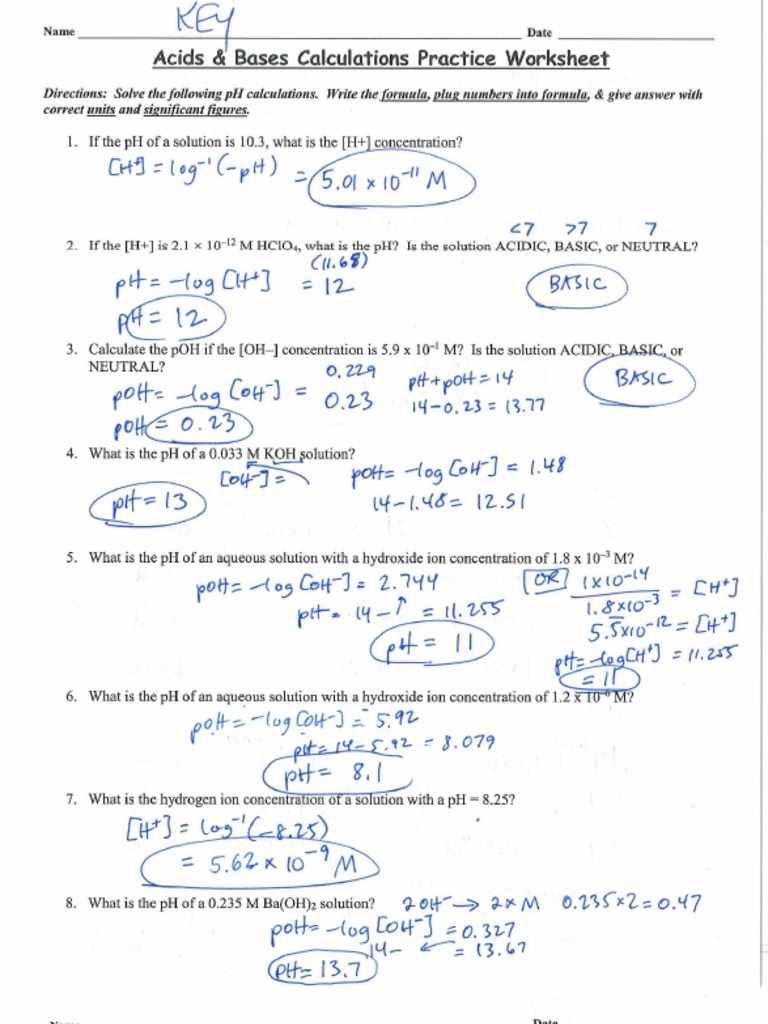 KEY
Name Date
Acids & Bases Calculations Practice Worksheet
Directions: Solve the following pH calculations. Write the formula, plug numbers into formula, & give answer with
correct units and significant figures.
1. If the pH of a solution is 10.3, what is the [H+] concentration?
[H+] = log⁻¹(-pH) = 5.01 x 10⁻¹¹ M
<7 >7 7
2. If the [H+] is 2.1 × 10⁻¹² M HClO₄, what is the pH? Is the solution ACIDIC, BASIC, or NEUTRAL?
(11.68)
pH = -log [H+] = 12 BASIC
pH = 12
3. Calculate the pOH if the [OH–] concentration is 5.9 x 10⁻¹ M? Is the solution ACIDIC, BASIC, or
NEUTRAL? 0.229 pH + pOH = 14 BASIC
pOH = -log [OH⁻] = 0.23 14-0.23 = 13.77
pOH = 0.23
4. What is the pH of a 0.033 M KOH solution?
[OH⁻] = pOH = -log [OH⁻] = 1.48
pH = 13 14-1.48 = 12.51
5. What is the pH of an aqueous solution with a hydroxide ion concentration of 1.8 x 10⁻³ M?
pOH = -log [OH⁻] = 2.744 [OR] 1x10⁻¹⁴
1.8x10⁻³ = [H+]
pH = 14 - ↑ = 11.255 5.5x10⁻¹² = [H+]
pH = 11 pH = -log[H+] = 11.255
= 11
6. What is the pH of an aqueous solution with a hydroxide ion concentration of 1.2 x 10⁻⁶ M?
pOH = -log [OH⁻] = 5.92
pH = 14-5.92 = 8.079
pH = 8.1
7. What is the hydrogen ion concentration of a solution with a pH = 8.25?
[H+] = log⁻¹(-8.25)
= 5.62 x 10⁻⁹ M
8. What is the pH of a 0.235 M Ba(OH)₂ solution? 2OH⁻ → 2xM 0.235x2 = 0.47
pOH = -log [OH⁻] = 0.327
14- ← = 13.67
pH = 13.7
Name Date